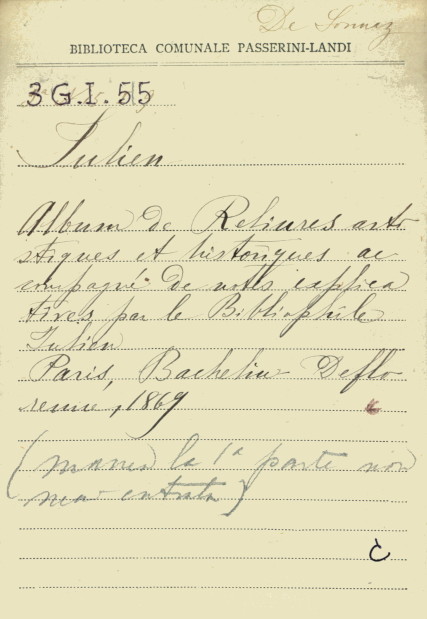 De Sonnaz
BIBLIOTECA COMUNALE PASSERINI-LANDI
3 G. I. 55
Julien
Album de Reliures arti
stiques et historiques ac
compagné de notes explica
tives par le Bibliophile
Julien
Paris, Bachelin Deflo
renne, 1869
(manca la 1ª parte non
mai entrata)
C